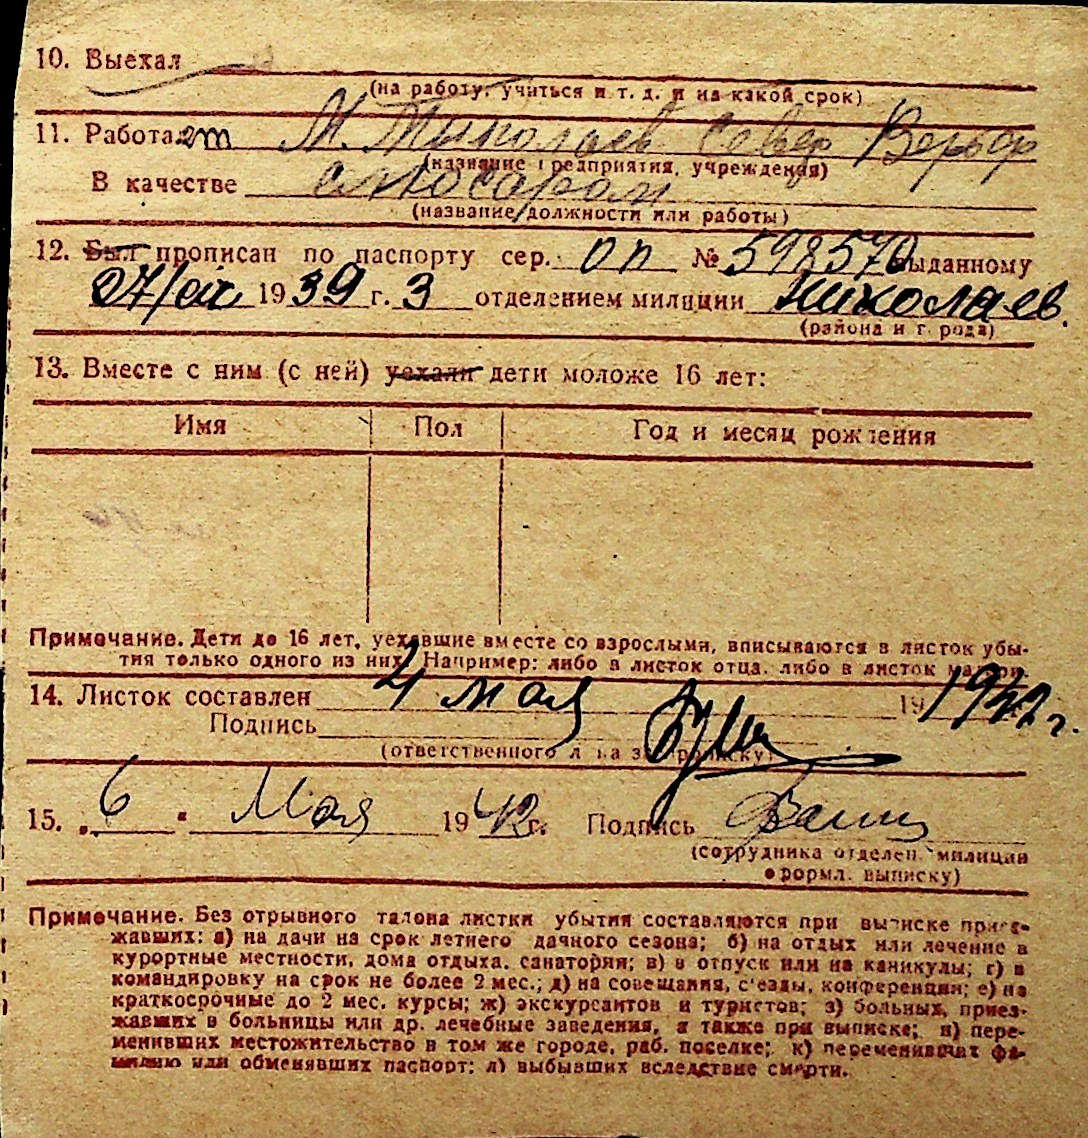 10. Выехал
(на работу, учиться и т. д. и на какой срок)
11. Работает М. Николаев Север Верфь
(название предприятия, учреждения)
В качестве слюсаром
(название должности или работы)
12. Был прописан по паспорту сер. ОП № 598570 выданному
1939 г. 3 отделением милиции Николаев.
(района и города)
13. Вместе с ним (с ней) уехали дети моложе 16 лет:
Имя Пол Год и месяц рождения
Примечание. Дети до 16 лет, уехавшие вместе со взрослыми, вписываются в листок убы-
тия только одного из них. Например: либо в листок отца, либо в листок матери
14. Листок составлен 4 мая 19 1942 г.
Подпись
(ответственного лица за прописку)
15. „6" Мая 1942 г. Подпись
(сотрудника отделен. милиции
оформл. выписку)
Примечание. Без отрывного талона листки убытия составляются при выписке приез-
жавших: а) на дачи на срок летнего дачного сезона; б) на отдых или лечение в
курортные местности, дома отдыха, санатория; в) в отпуск или на каникулы; г) в
командировку на срок не более 2 мес.; д) на совещания, с'езды, конференции; е) на
краткосрочные до 2 мес. курсы; ж) экскурсантов и туристов; з) больных, приез-
жавших в больницы или др. лечебные заведения, а также при выписке; и) пере-
менивших местожительство в том же городе, раб. поселке; к) переменивших фа-
милию или обменявших паспорт; л) выбывших вследствие смерти.